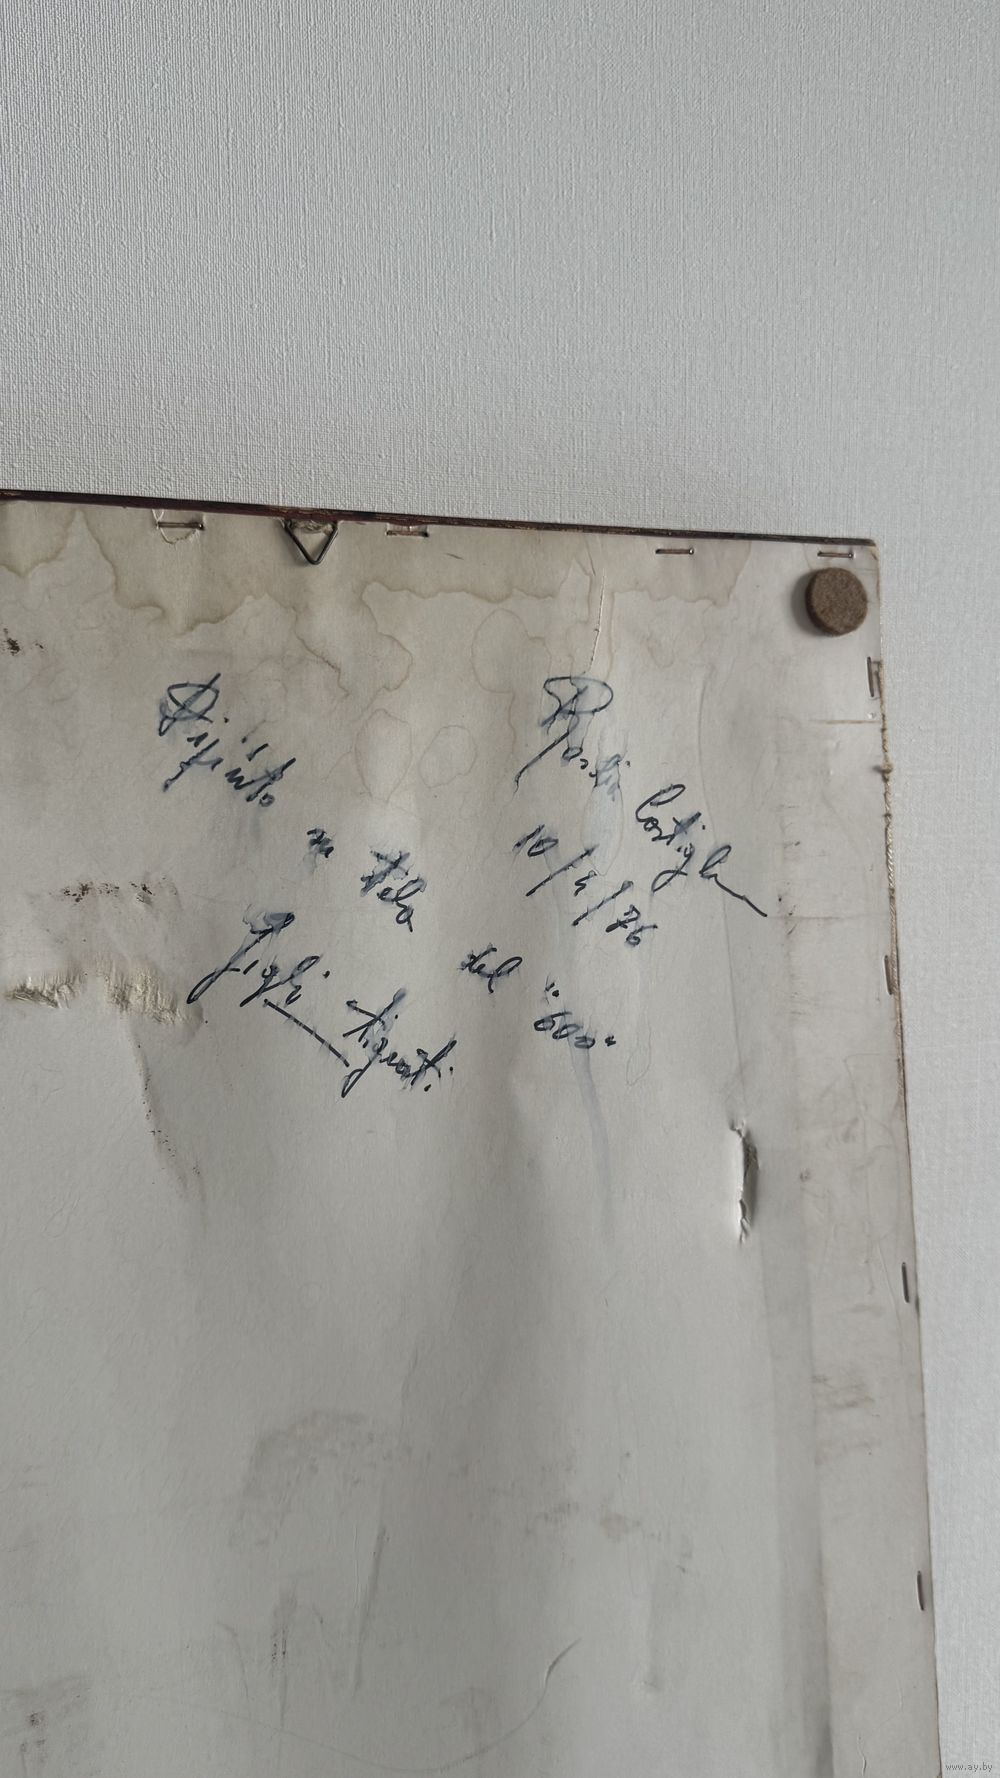 10/4/76
Dipinto su tela del "600"
Gigli tigrati.
www.ay.by